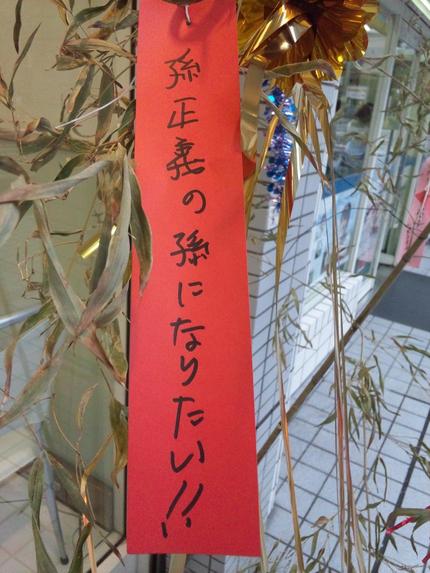 孫正義の孫になりたい!!